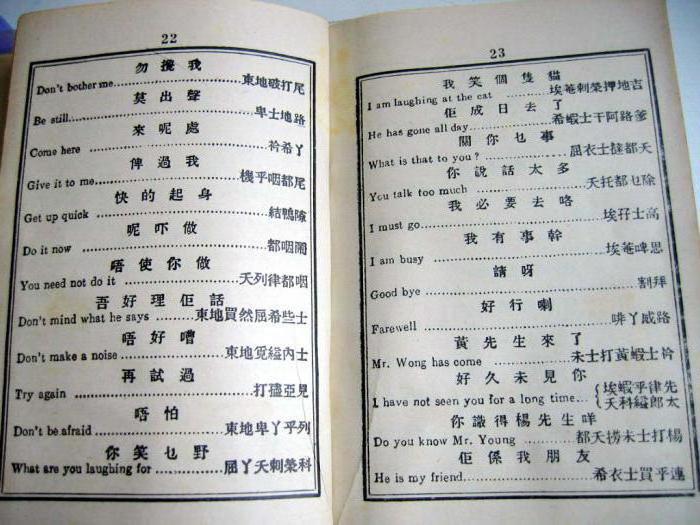 22
勿攪我
Don't bother me 東地破打尾
莫出聲
Be still 卑士地路
來呢處
Come here 衿希丫
俾過我
Give it to me 機乎咽都尾
快的起身
Get up quick 結鴨隙
呢吓做
Do it now 都咽鬧
唔使你做
You need not do it 天列律都咽
吾好理佢話
Don't mind what he says 東地買然屈希些士
唔好嘈
Don't make a noise 東地縊覓內士
再試過
Try again 打孻亞見
唔怕
Don't be afraid 東地卑丫乎列
你笑乜野
What are you laughing for 屈丫天剌榮科
23
我笑個隻貓
I am laughing at the cat 埃菴剌榮押地吉
佢成日去了
He has gone all day 希蝦士干阿路爹
關你乜事
What is that to you? 屈衣士撻都天
你說話太多
You talk too much 天托都乜除
我必要去咯
I must go 埃孖士高
我有事幹
I am busy 埃菴啤思
請呀
Good bye 割拜
好行喇
Farewell 啡丫威路
黃先生來了
Mr. Wong has come 未士打黃蝦士衿
好久未見你
I have not seen you for a long time 埃蝦乎律先
天科縊郎太
你識得楊先生咩
Do you know Mr. Young 都天撈未士打楊
佢係我朋友
He is my friend 希衣士買乎連